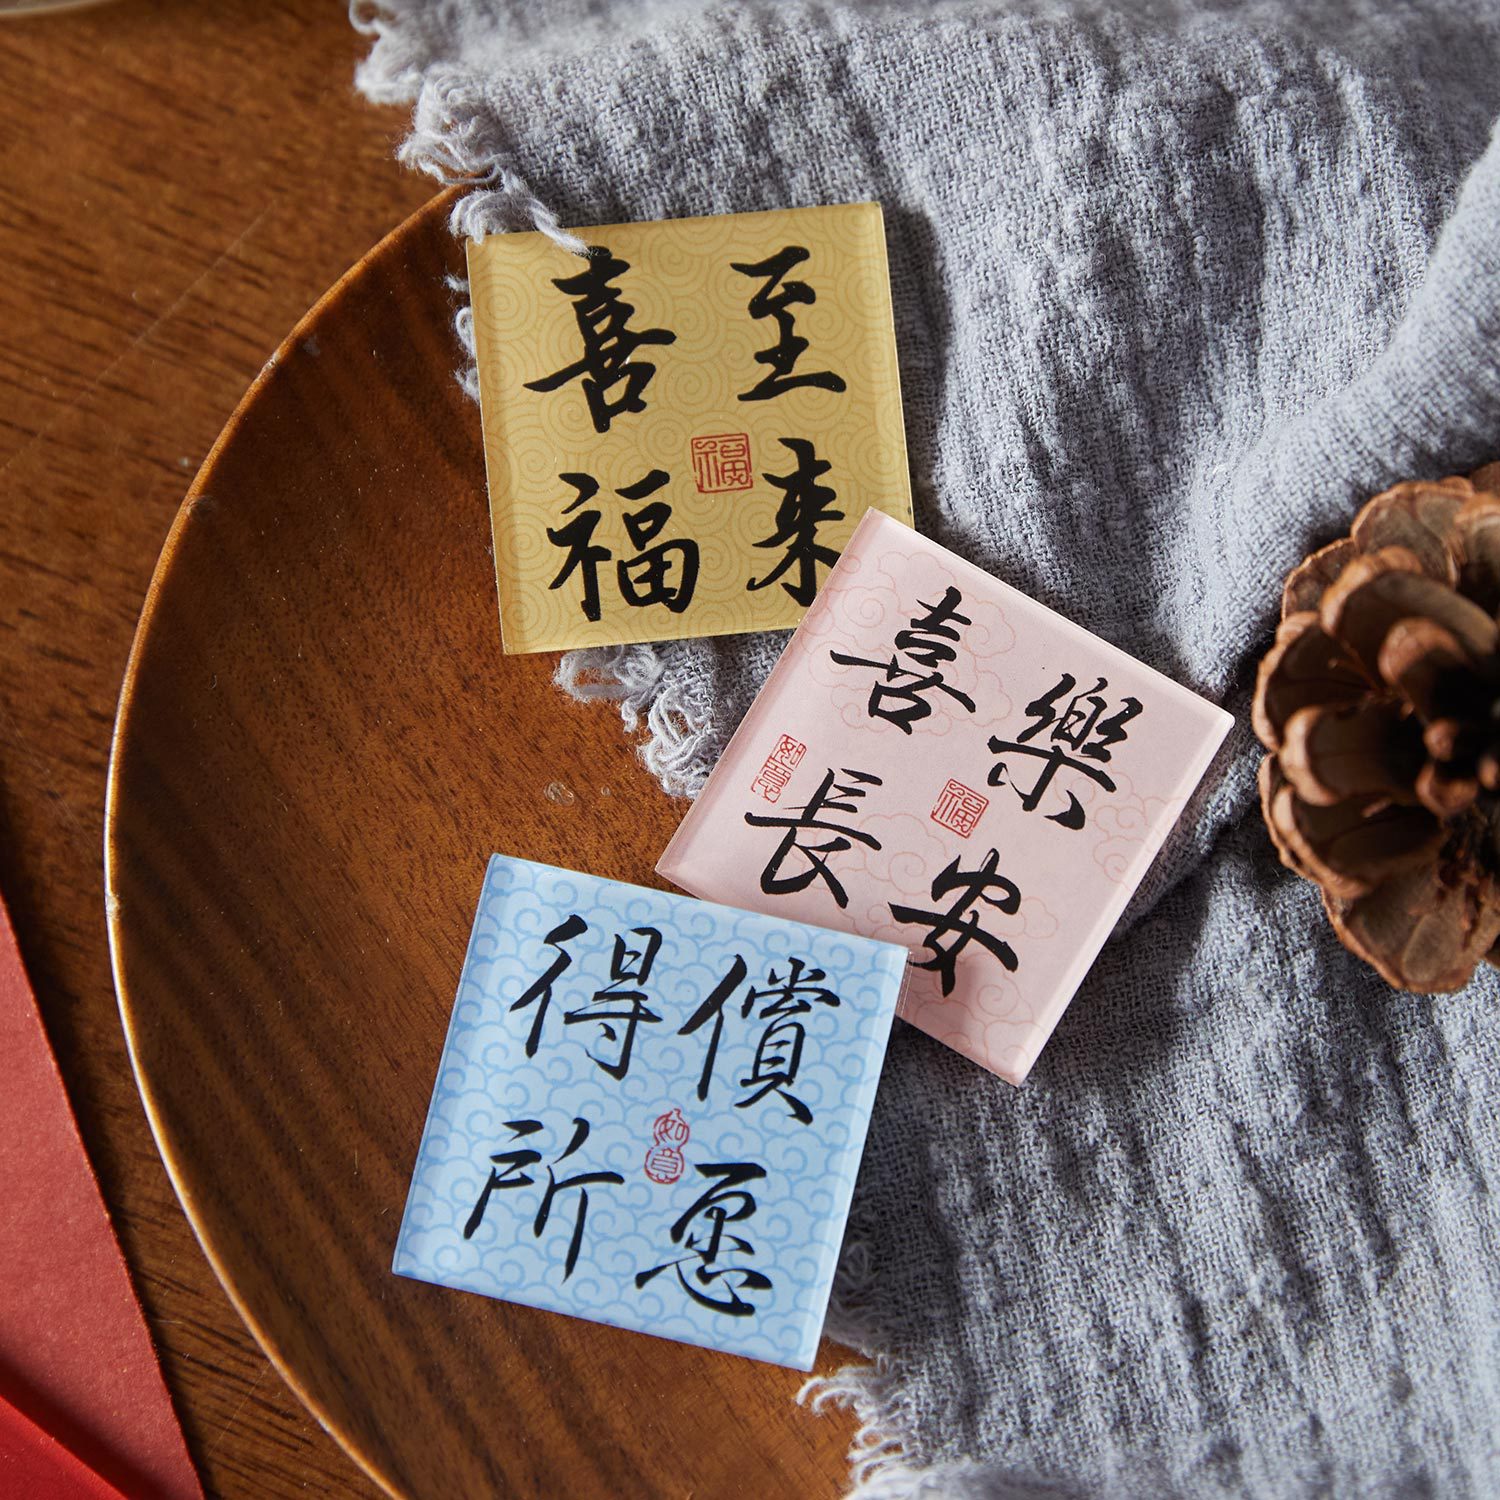 喜至
福
福来
喜樂
如意
福
長安
得償
如意
所愿